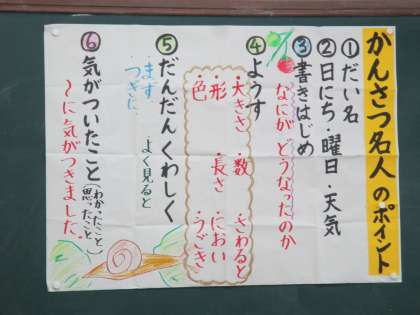 かんさつ名人のポイント
①だい名
②日にち・曜日・天気
③書きはじめ
なにが どうなったのか
④ようす
・大きさ ・数 さわると
・形 ・長さ におい
・色 うごき
⑤だんだんくわしく
まず、 よく見ると
つぎに
⑥気がついたこと(わかったこと 思ったこと)
〜に気がつきました。